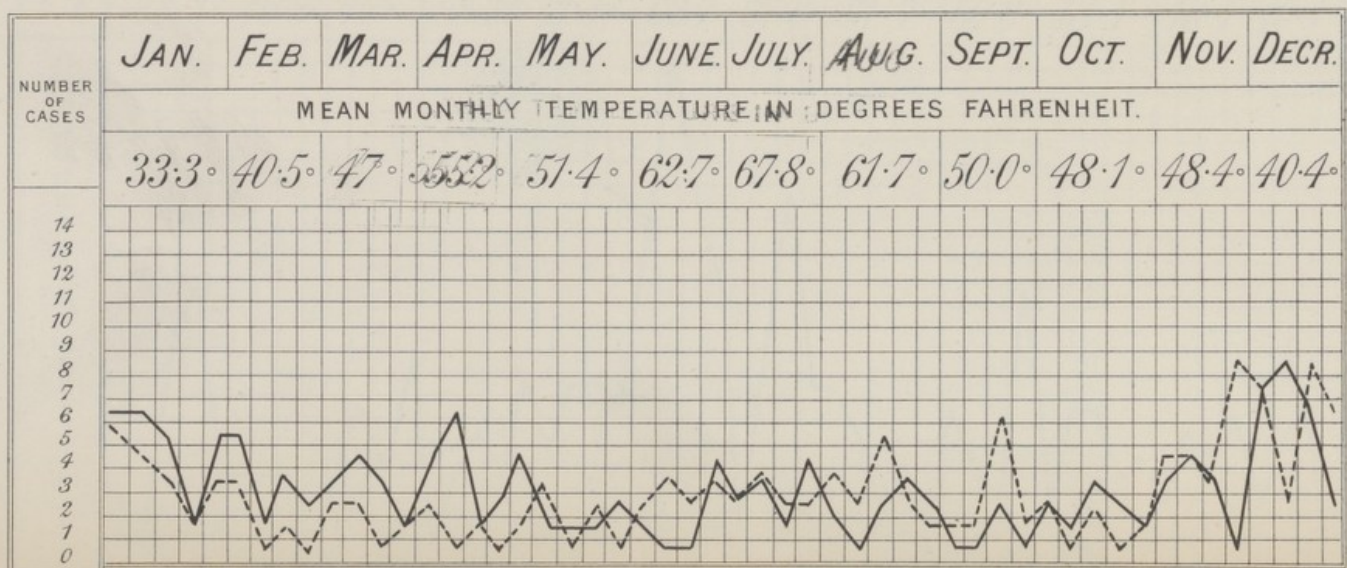 NUMBER
OF
CASES
JAN. FEB. MAR. APR. MAY. JUNE. JULY. AUG. SEPT. OCT. NOV. DECR.
MEAN MONTHLY TEMPERATURE IN DEGREES FAHRENHEIT.
33·3° 40·5° 47° 55·2° 51·4° 62·7° 67·8° 61·7° 50·0° 48·1° 48·4° 40·4°
14
13
12
11
10
9
8
7
6
5
4
3
2
1
0